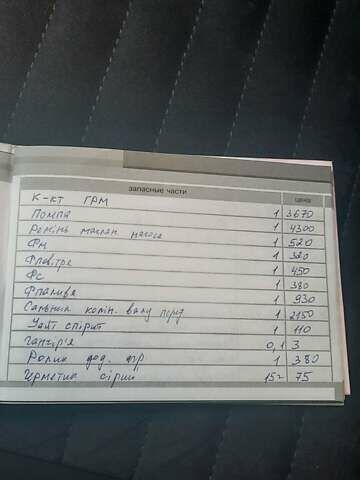 запасные части цена
К-кт ГРМ 1 3670
Помпа 1 4300
Ремінь маслян насоса 1 520
Фм 1 320
Фповітря 1 450
Фс 1 380
Фпалива 1 930
Сальник колін. валу перед 1 2150
Уайт спірит 1 110
Ганчір'я 0,1 3
Ролик дод. 1 380
Герметик сірий 15г 75